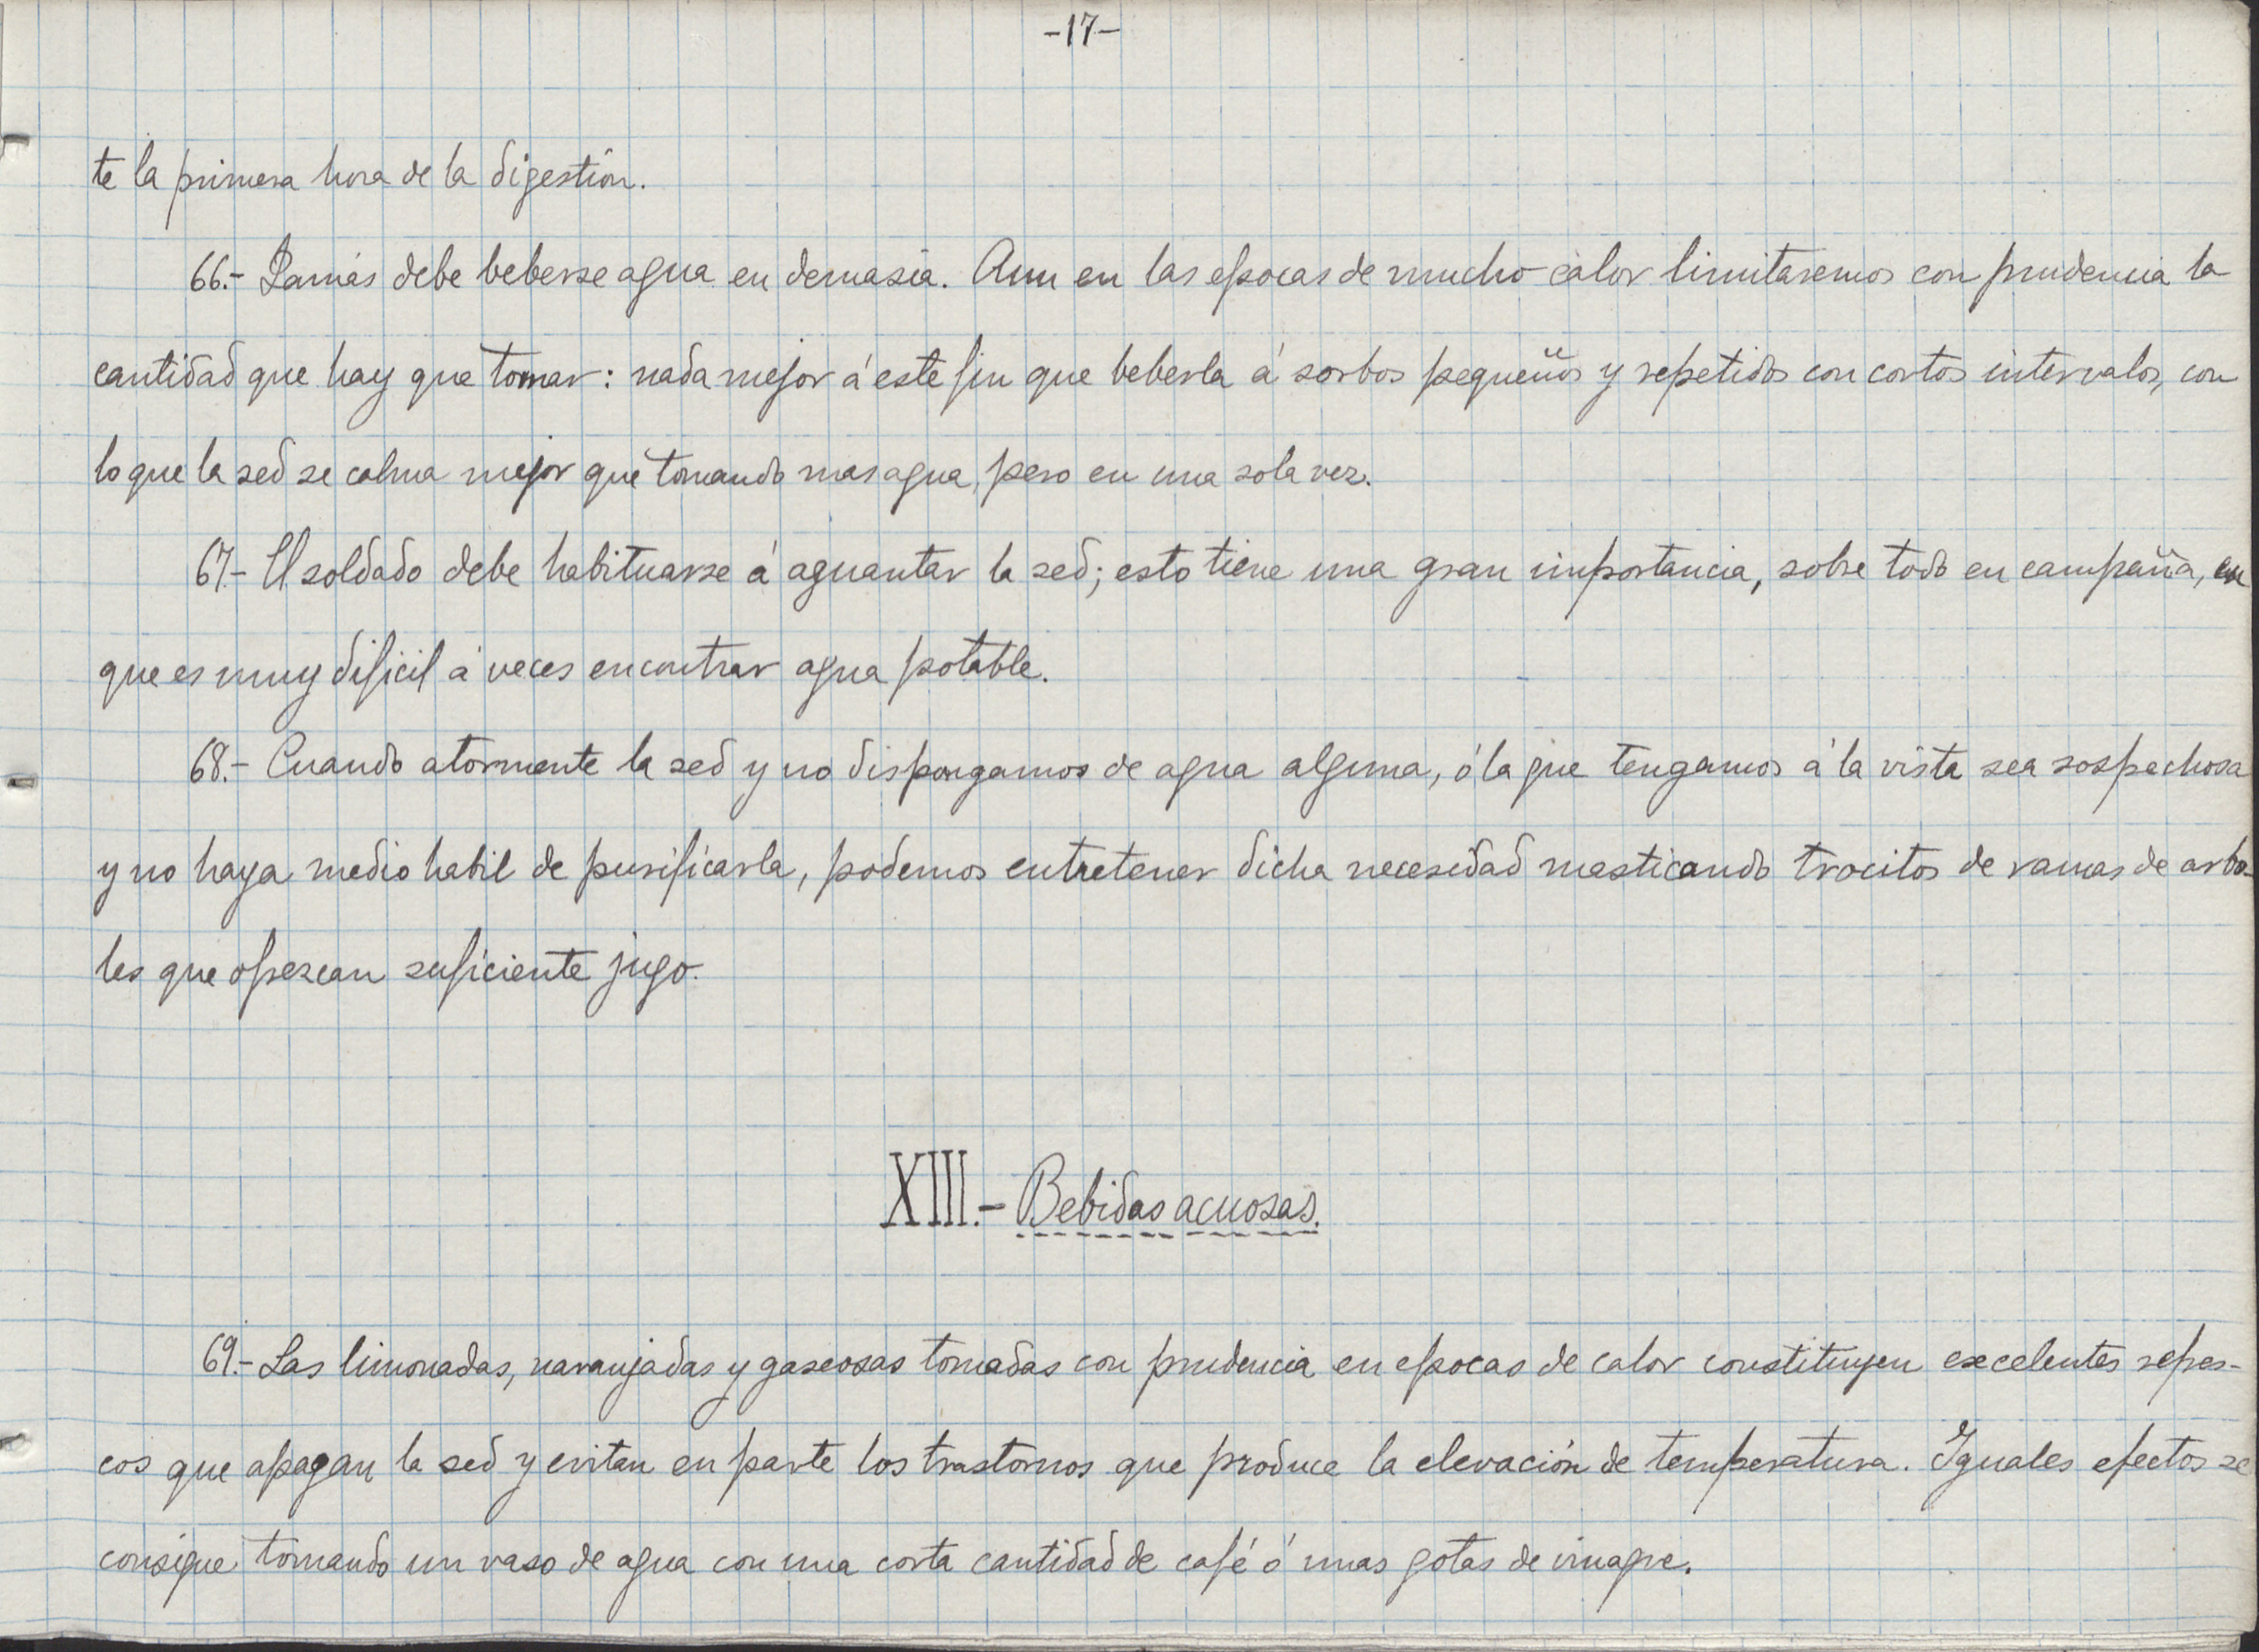 -17-
te la primera hora de la digestión.
66.- Jamás debe beberse agua en demasía. Aun en las epocas de mucho calor limitaremos con prudencia la
cantidad que hay que tomar: nada mejor á este fin que beberla á sorbos pequeños y repetidos con cortos intervalos, con
lo que la sed se calma mejor que tomando mas agua, pero en una sola vez.
67.- El soldado debe habituarse á aguantar la sed; esto tiene una gran importancia, sobre todo en campaña, en
que es muy dificil á veces encontrar agua potable.
68.- Cuando atormente la sed y no dispongamos de agua alguna, ó la que tengamos á la vista sea sospechosa
y no haya medio habil de purificarla, podemos entretener dicha necesidad masticando trocitos de ramas de arbo-
les que ofrezcan suficiente jugo.
XIII.- Bebidas acuosas.
69.- Las limonadas, naranjadas y gaseosas tomadas con prudencia en epocas de calor constituyen excelentes refres-
cos que apagan la sed y evitan en parte los trastornos que produce la elevación de temperatura. Iguales efectos se
consigue tomando un vaso de agua con una corta cantidad de café ó unas gotas de vinagre.